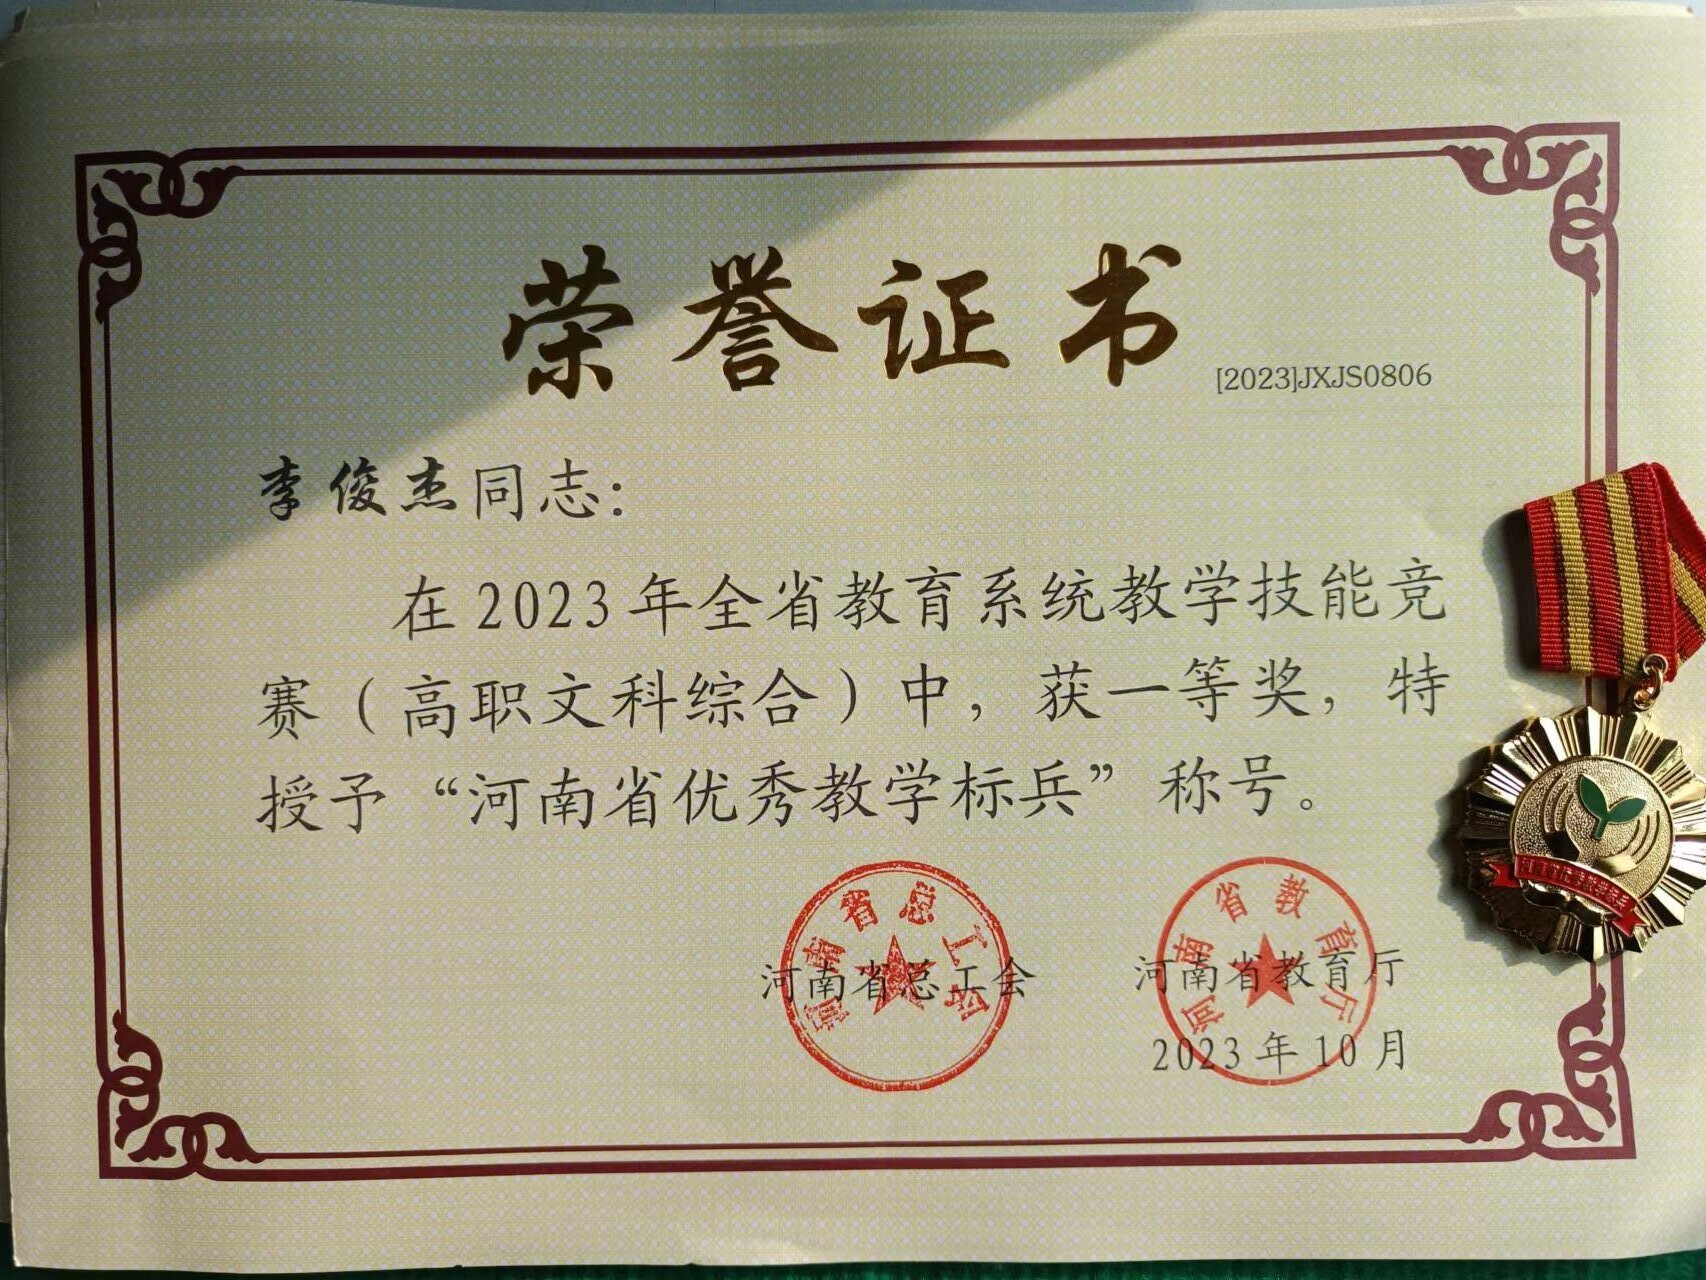 荣誉证书
[2023]JXJS0806
李俊杰同志：
在2023年全省教育系统教学技能竞
赛（高职文科综合）中，获一等奖，特
授予“河南省优秀教学标兵”称号。
河南省总工会
河南省教育厅
河南省总工会
河南省教育厅
2023年10月